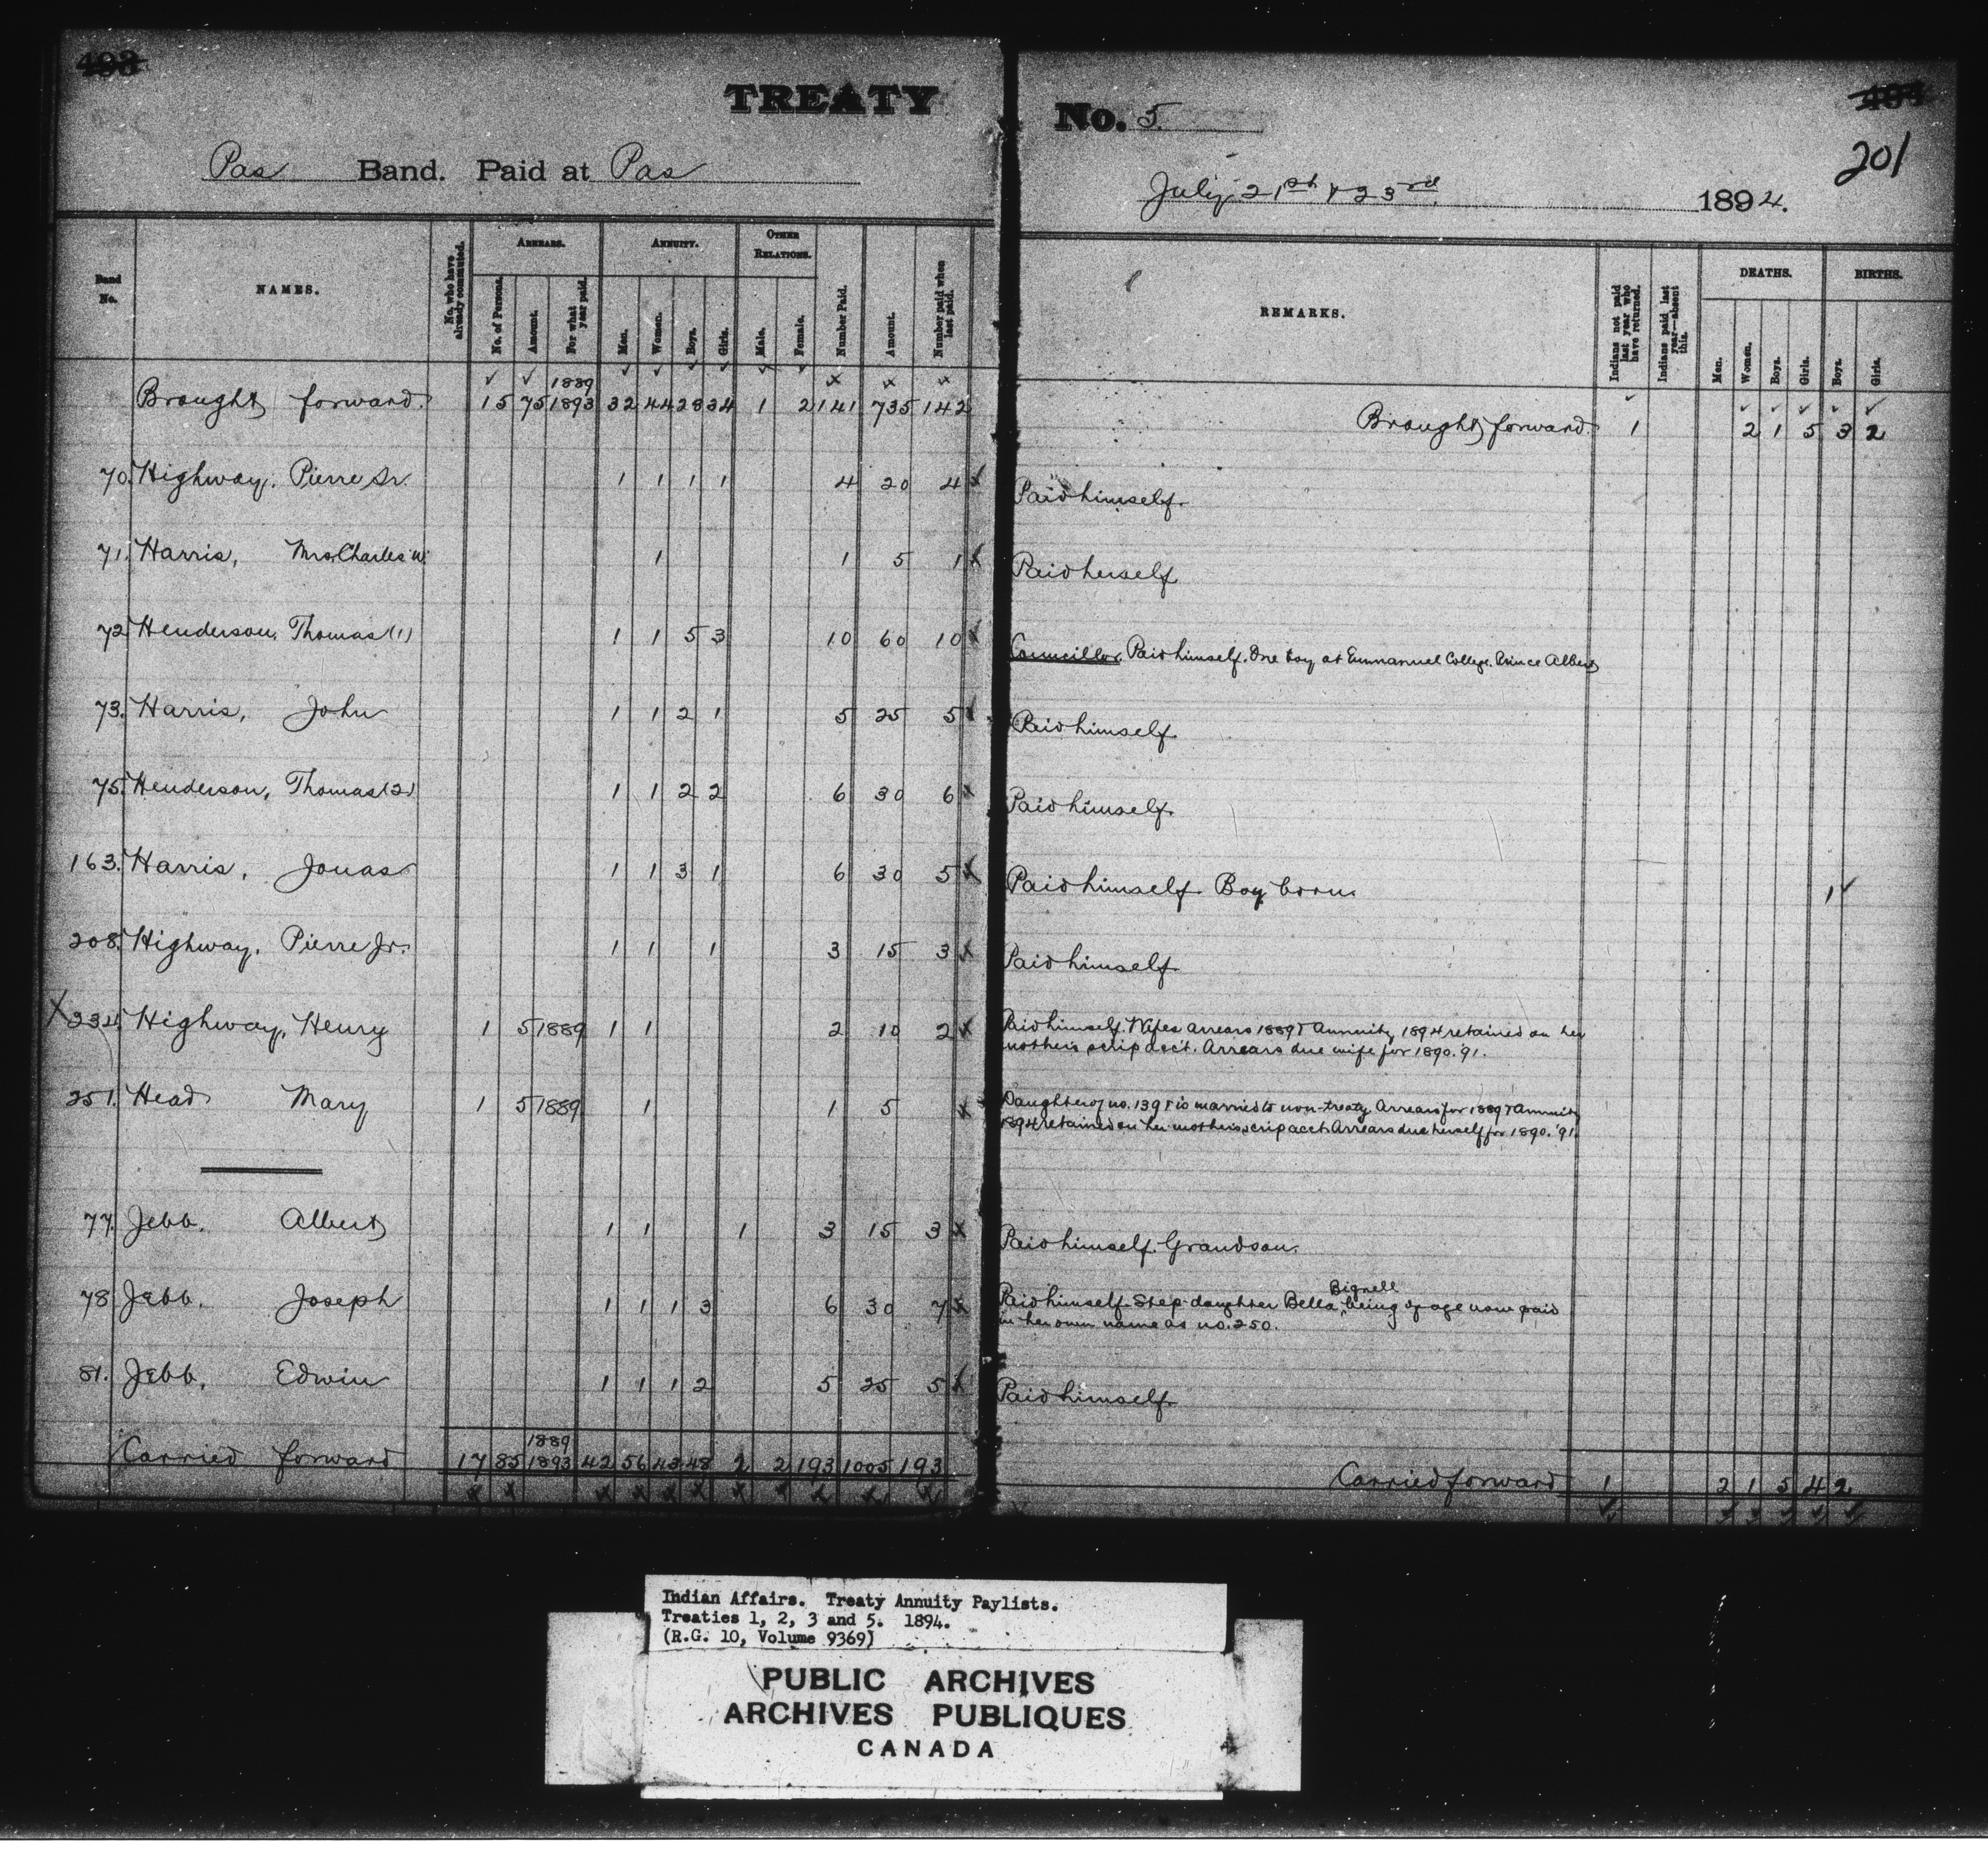 493
494
TREATY No. 5.
201
Pas Band. Paid at Pas July 21st & 23rd 1894.
Band No. NAMES. No. who have already commuted. ARREARS. No. of Persons. Amount. For what year paid. ANNUITY. Men. Women. Boys. Girls. OTHER RELATIONS. Male. Female. Number Paid. Amount. Number paid when last paid. REMARKS. Indians not paid last year who have returned. Indians paid last year—absent this. DEATHS. Men. Women. Boys. Girls. BIRTHS. Boys. Girls.
Brought forward. 15 75 1889 1893 32 44 28 34 1 2 141 735 142 Brought forward. 1 2 1 5 3 2
70. Highway, Pierre Sr. 1 1 1 1 4 20 4 x Paid himself.
71. Harris, Mrs. Charles W. 1 1 5 1 x Paid herself
72. Henderson, Thomas (1) 1 1 5 3 10 60 10 x Councillor. Paid himself. One boy at Emmanuel College. Prince Albert
73. Harris, John 1 1 2 1 5 25 5 x Paid himself.
75. Henderson, Thomas (2) 1 1 2 2 6 30 6 x Paid himself.
163. Harris, Jonas 1 1 3 1 6 30 5 x Paid himself. Boy born. 1
208. Highway, Pierre Jr. 1 1 1 3 15 3 x Paid himself.
X 234. Highway, Henry 1 5 1889 1 1 2 10 2 x Paid himself. Wifes arrears 1889 & Annuity 1894 retained on her
mother's scrip acc't. Arrears due wife for 1890. '91.
251. Head Mary 1 5 1889 1 1 5 x Daughter of no. 139 & is married to non-treaty. Arrears for 1889 & Annuity
1894 retained on her mother's scrip acct. Arrears due herself for 1890. '91.
77. Jebb. Albert 1 1 1 3 15 3 x Paid himself. Grandson.
78. Jebb. Joseph 1 1 1 3 6 30 7 x Paid himself. Step-daughter Bella Bignell being of age now paid
in her own name as no. 250.
81. Jebb, Edwin 1 1 1 2 5 25 5 x Paid himself.
Carried forward 17 85 1889 1893 42 56 43 48 2 2 193 1005 193 Carried forward 1 2 1 5 4 2
Indian Affairs. Treaty Annuity Paylists.
Treaties 1, 2, 3 and 5. 1894.
(R.G. 10, Volume 9369)
PUBLIC ARCHIVES
ARCHIVES PUBLIQUES
CANADA